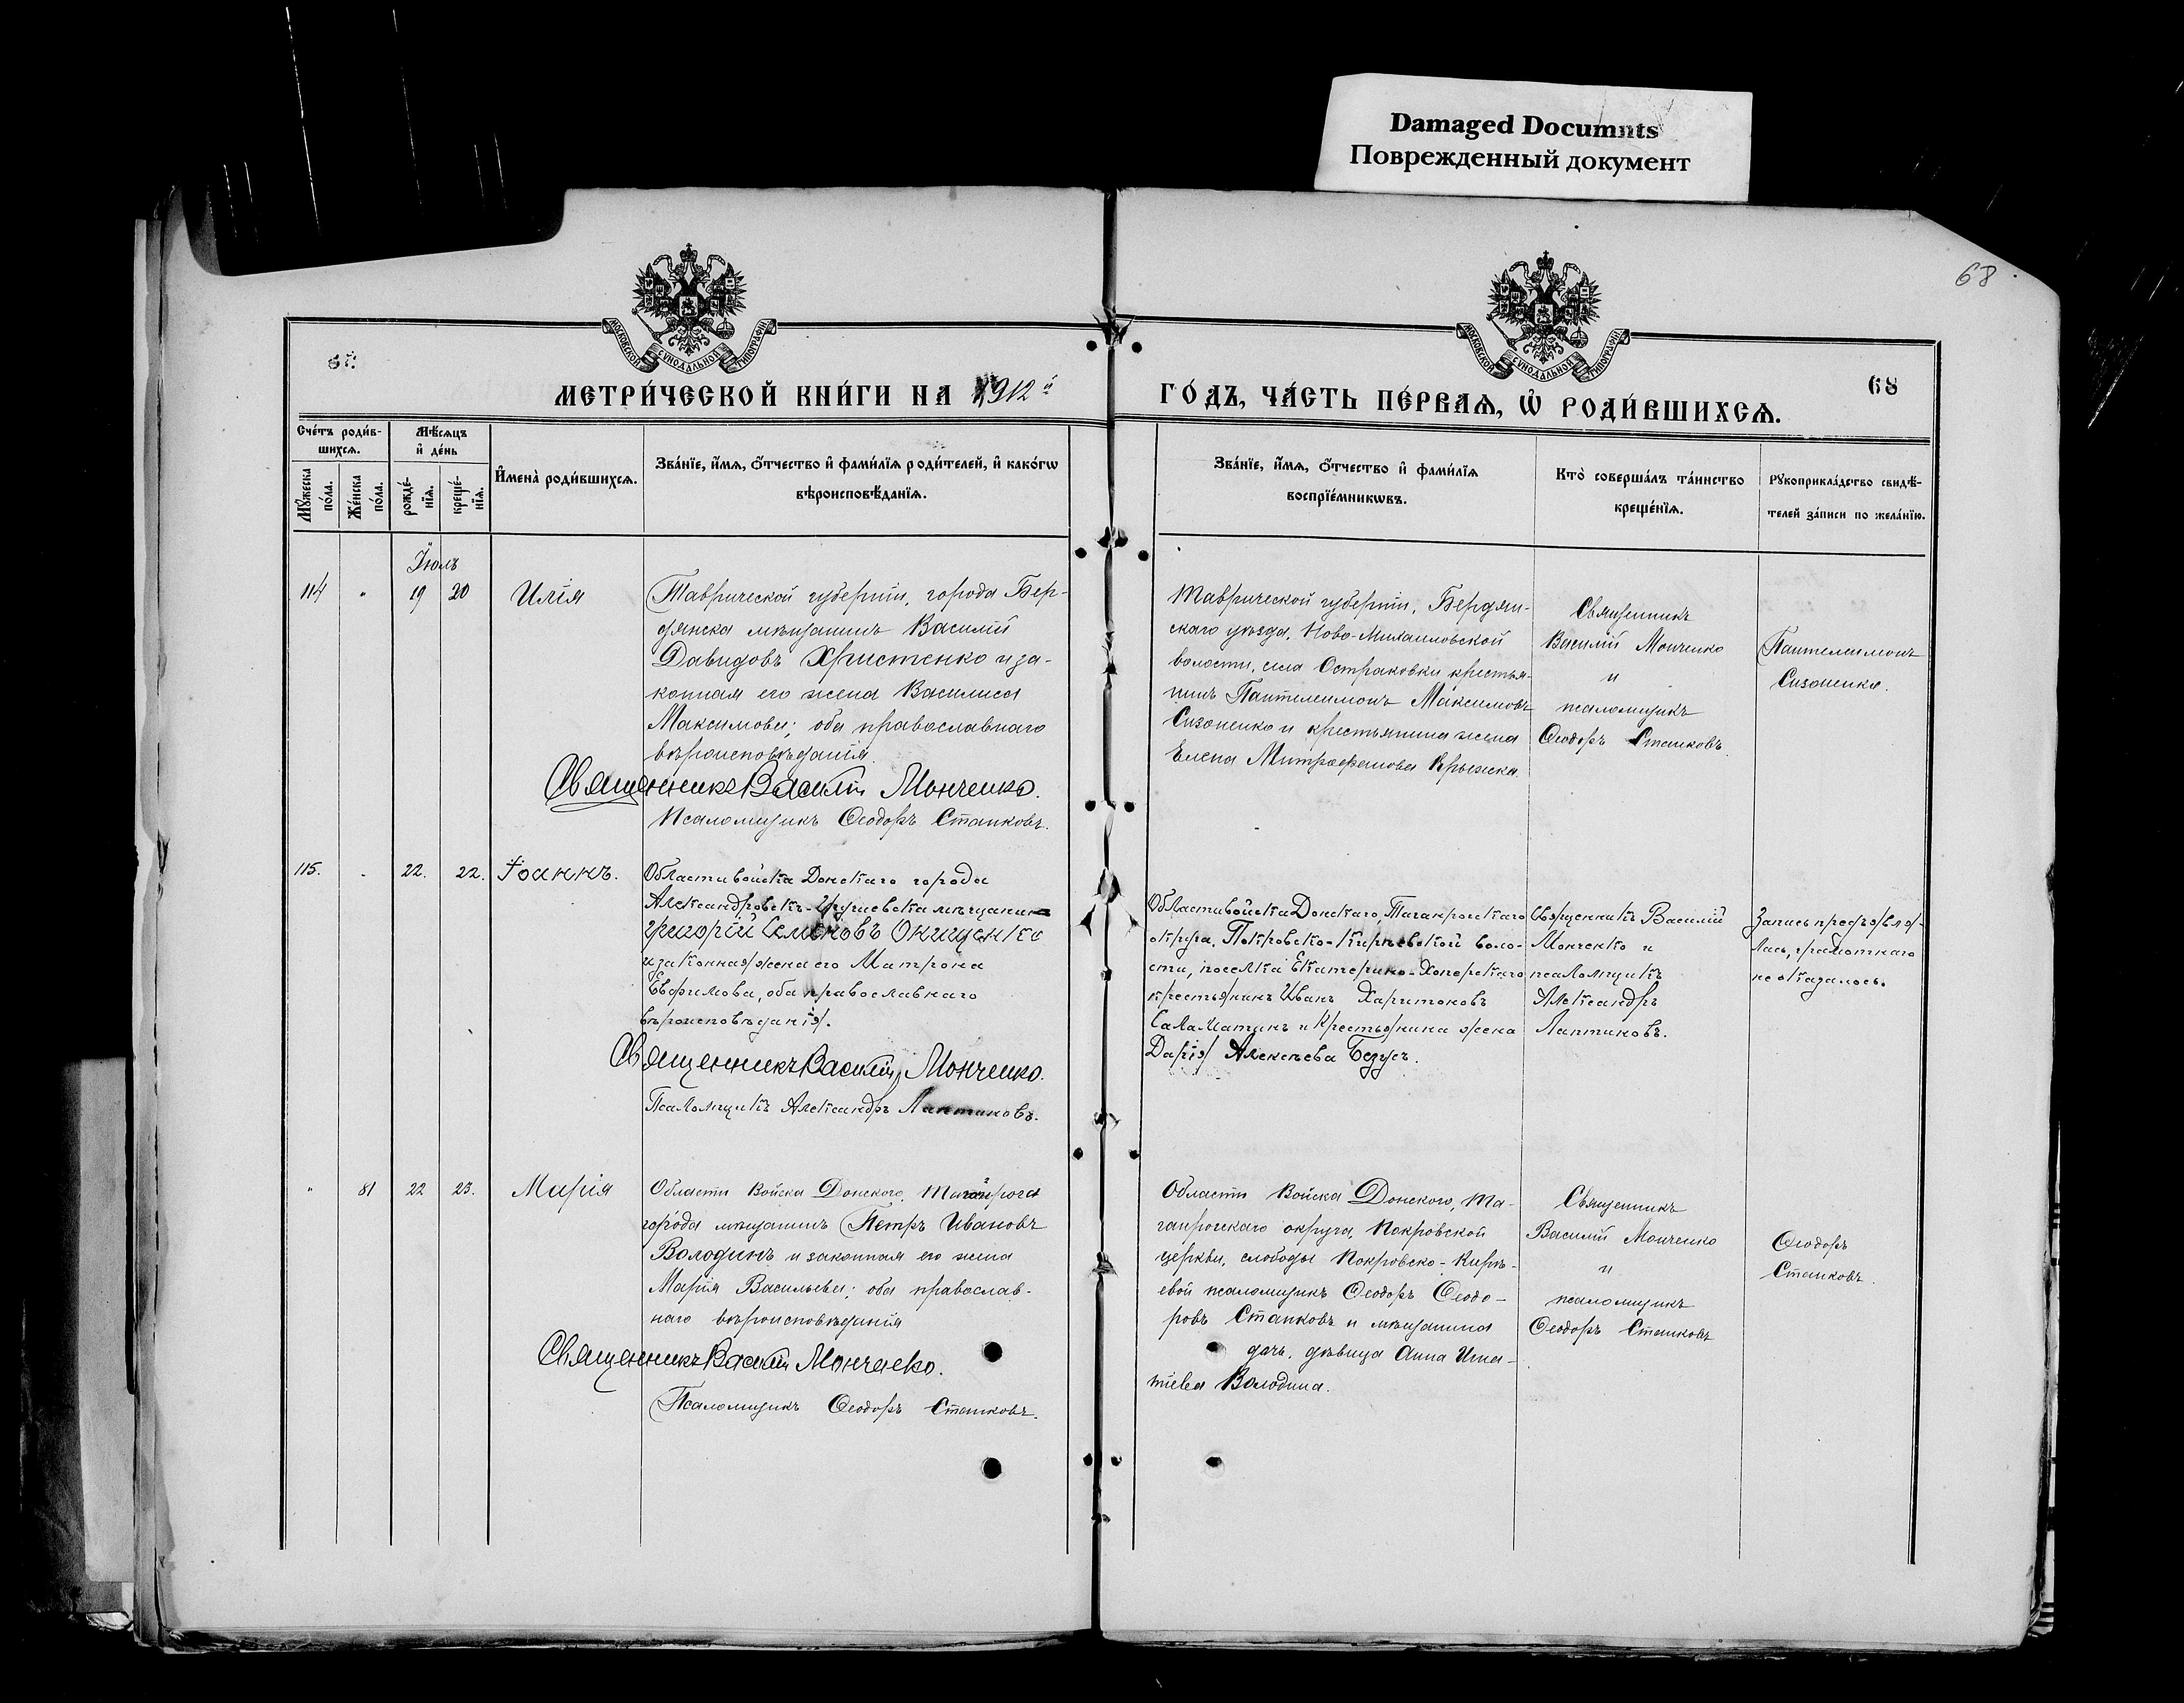 Damaged Documnts
Поврежденный документ
68
МОСКОВСКОЙ СѴНОДАЛЬНОЙ ТИПОГРАФІИ
МОСКОВСКОЙ СѴНОДАЛЬНОЙ ТИПОГРАФІИ
68
МЕТРИ́ЧЕСКОЙ КНИ́ГИ НА 1912й
ГО́ДЪ, ЧА́СТЬ ПЕ́РВАЯ, Ѡ҆ РОДИ́ВШИХСЯ.
Сче́тъ роди́в-
шихся.
Мѣсяцъ
и҆ де́нь
Мꙋжеска
по́ла.
Же́нска
по́ла.
рожде́-
нїѧ.
креще́-
нїѧ.
И҆мена̀ роди́вшихсѧ.
Зва́нїе, и҆́мѧ, ѻ҆́тчество и҆ фами́лїѧ роди́телей, и҆ како́гѡ
вѣроисповѣ́данїѧ.
Зва́нїе, и҆́мѧ, ѻ҆́тчество и҆ фами́лїѧ
воспрїе́мникѡвъ.
Кто̀ соверша́лъ та́инство
креще́нїѧ.
Рꙋкоприкла́дство свидѣ́-
телей за́писи по жела́нїю.
Іюль
114 " 19 20 Илія
Таврической губерніи, города Бер-
дянска мѣщанинъ Василій
Давидовъ Христенко и за-
конная его жена Василиса
Максимова; оба православнаго
вѣроисповѣданія.
Священникъ Василій Монченко.
Псаломщикъ Ѳеодоръ Станковъ.
Таврической губерніи, Бердян-
скаго уѣзда, Ново-Михаиловской
волости, села Остраковки крестья-
нинъ Пантелеимонъ Максимовъ
Сизоненко и крестьянина жена
Елена Митрофанова Крыжка
Священникъ
Василій Монченко
и
псаломщикъ
Ѳеодоръ Станковъ.
Пантелеимонъ
Сизоненко.
115. . 22. 22. Іоаннъ.
Области войска Донскаго города
Александровскъ-Грушевска мѣщанинъ
Григорій Семеновъ Онищенко
и законная жена его Матрона
Евфимова, оба православнаго
вѣроисповѣданія.
Священникъ Василій Монченко.
Псаломщикъ Александръ Лаптиковъ.
Области войска Донскаго, Таганрогскаго
округа, Покровско-Кирѣевской воло-
сти, поселка Екатерино-Хоперскаго
крестьянинъ Иванъ Харитоновъ
Саламатинъ и крестьянина жена
Дарія Алексѣева Бедусъ.
Священникъ Василій
Монченко и
псаломщикъ
Александръ
Лаптиковъ.
Запись предъявля-
лась, грамотнаго
не оказалось.
" 81 22 23. Марія
Области Войска Донского, Таганрога
города мѣщанинъ Петръ Ивановъ
Володинъ и законная его жена
Марія Васильева; оба православ-
наго вѣроисповѣданія
Священникъ Василій Монченко.
Псаломщикъ Ѳеодоръ Станковъ.
Области Войска Донского, Та-
ганрогскаго округа, Покровской
церкви, слободы Покровско-Кирѣ-
евой псаломщикъ Ѳеодоръ Ѳеодо-
ровъ Станковъ и мѣщанина
дочь, дѣвица Анна Игна-
тіева Володина.
Священникъ
Василій Монченко
и
псаломщикъ
Ѳеодоръ Станковъ
Ѳеодоръ
Станковъ.